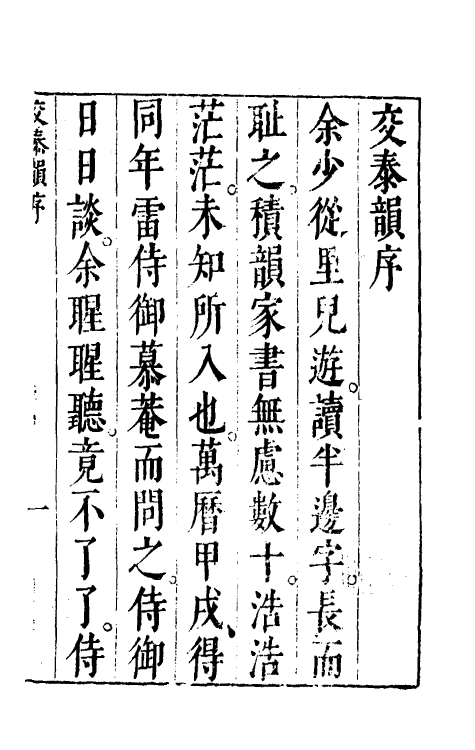 交泰韻序
余少從里兒遊。讀半邊字。長而
耻之。積韻家書無慮數十。浩浩
茫茫。未知所入也。萬曆甲戌、得
同年雷侍御慕菴而問之。侍御
日日談。余腥腥聽。竟不了了。侍
交泰韻序
一